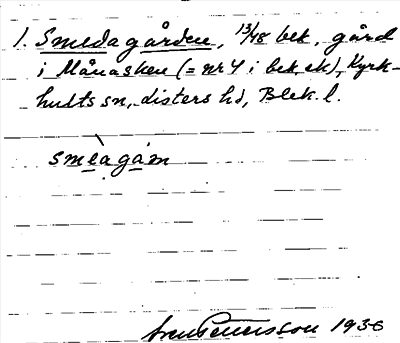 1. Smedagården, 13/48 bek. gård
i Månasken (= nr 4 i bek. ek), Kyrk-
hults sn, Listers hd, Blek. l.
smèagám
1936